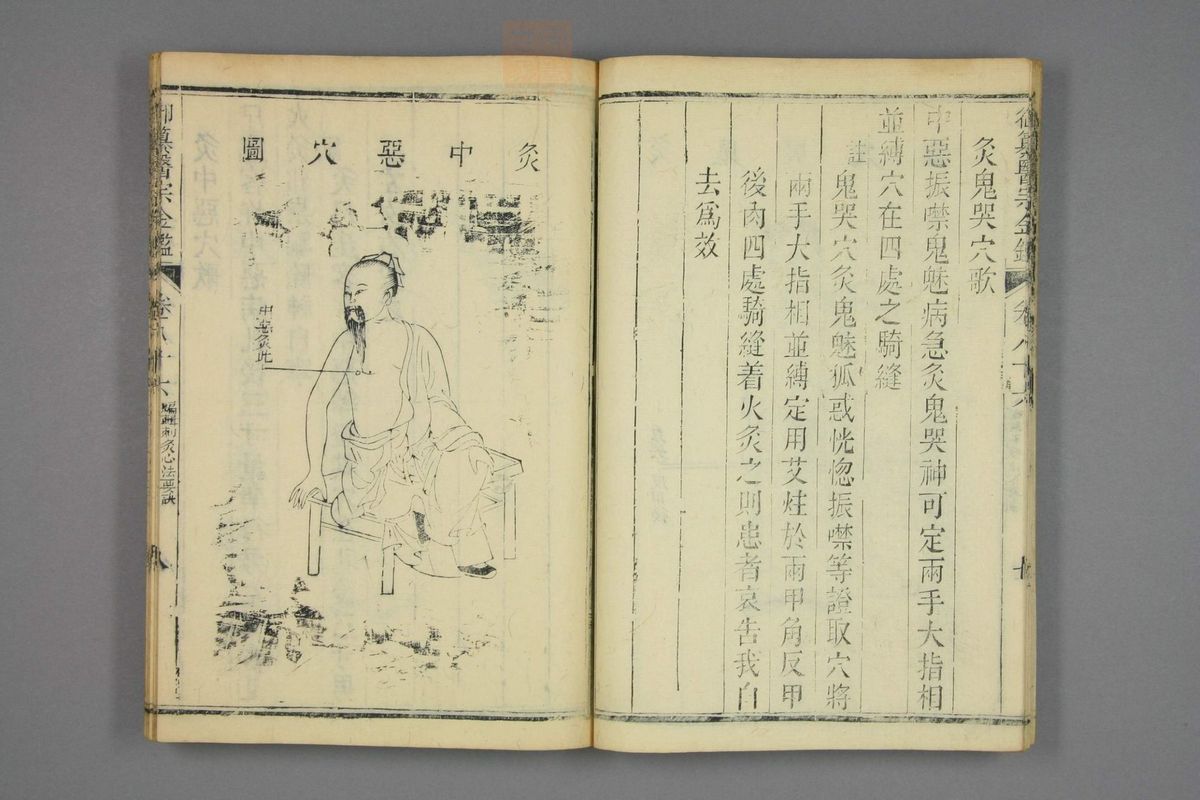 灸鬼哭穴歌
中惡振噤鬼魅病急灸鬼哭神可定兩手大指相
並縛穴在四處之騎縫
註鬼哭穴灸鬼魅狐惑恍惚振噤等證取穴將
兩手大指相並縛定用艾炷於兩甲角反甲
後肉四處騎縫着火灸之則患者哀告我自
去爲效
灸中惡穴圖
中惡灸此
御纂醫宗金鑑
卷八十六
編輯刺灸心法要訣